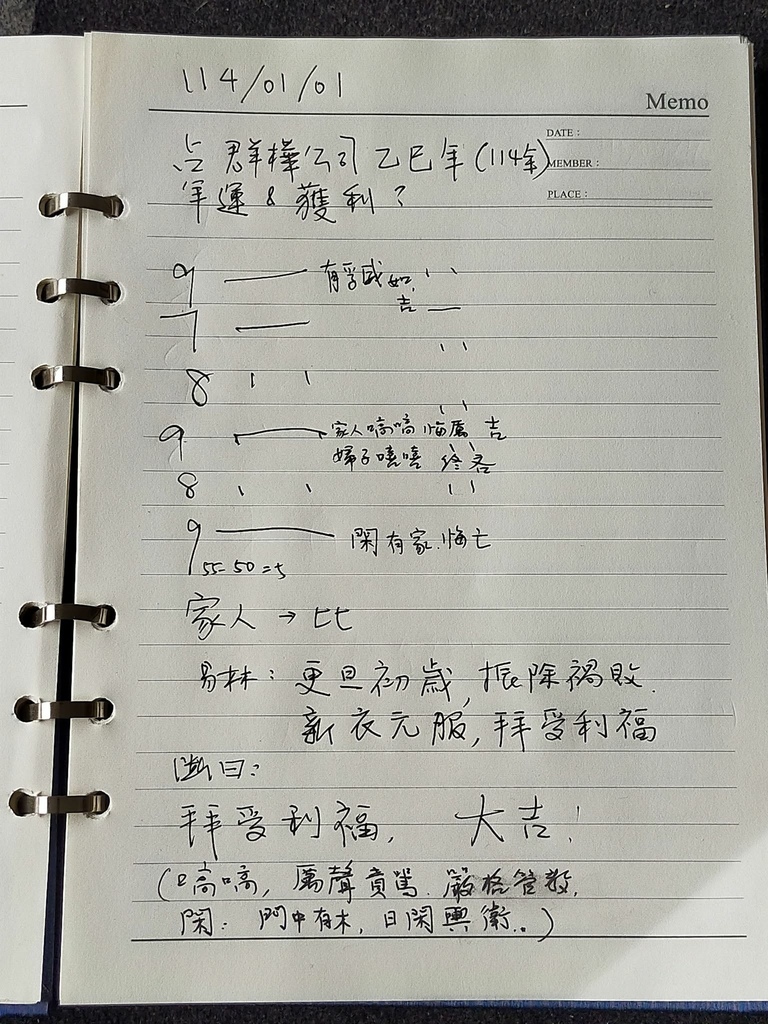 114/01/01
Memo
DATE:
占 群樺公司 乙巳年 (114年)
MEMBER:
年運 & 獲利?
PLACE:
9 有孚威如,
吉
7
8
9 家人嗃嗃 悔厲 吉
婦子嘻嘻 終吝
8
9 閑有家.悔亡
55-50=5
家人→比
易林: 更旦初歲, 振除禍敗.
新衣元服, 拜受利福
斷曰:
拜受利福, 大吉!
(嗃嗃, 厲聲責罵. 嚴格管教,
閑: 門中有木, 日閑輿衛..)